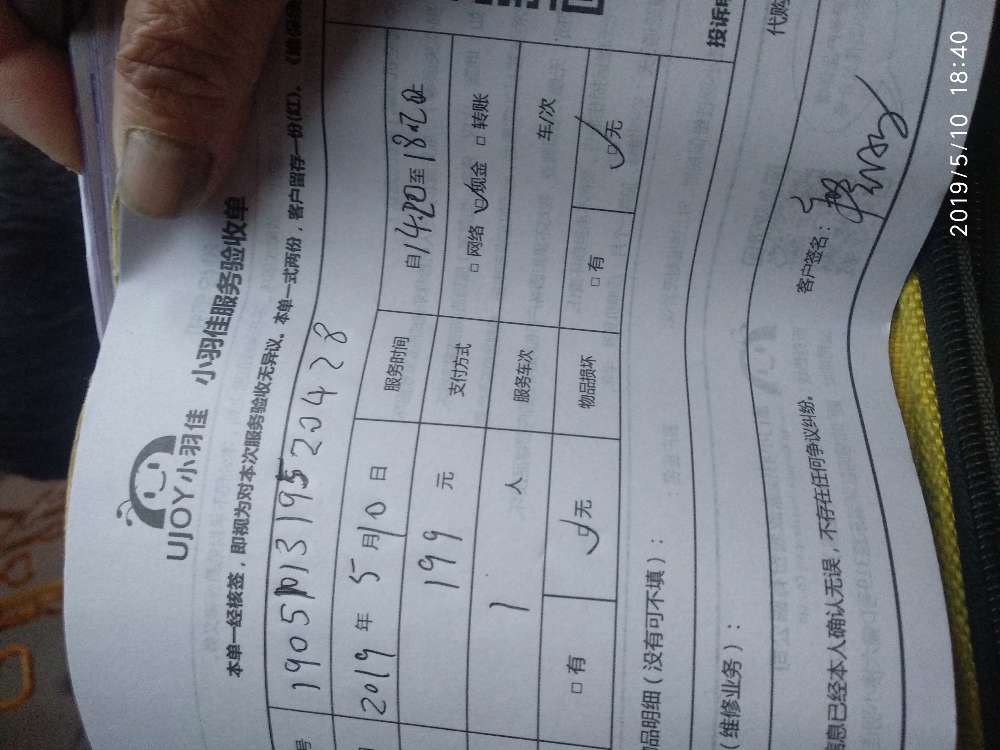 UJOY小羽佳 小羽佳服务验收单
本单一经核签，即视为对本次服务验收无异议。本单一式两份，客户留存一份(红)。
号 19051013195204 28
2019 年 5 月 10 日 服务时间 自 14:20 至
199 元 支付方式 □ 网络 ☑ 现金 □ 转账
1 人 服务车次 车/次
□ 有 ☑ 无 物品损坏 □ 有 ☑ 无
物品明细（没有可不填）：
（维修业务）：
投诉
代购
客户签名：
信息已经本人确认无误，不存在任何争议纠纷。
2019/5/10 18:40